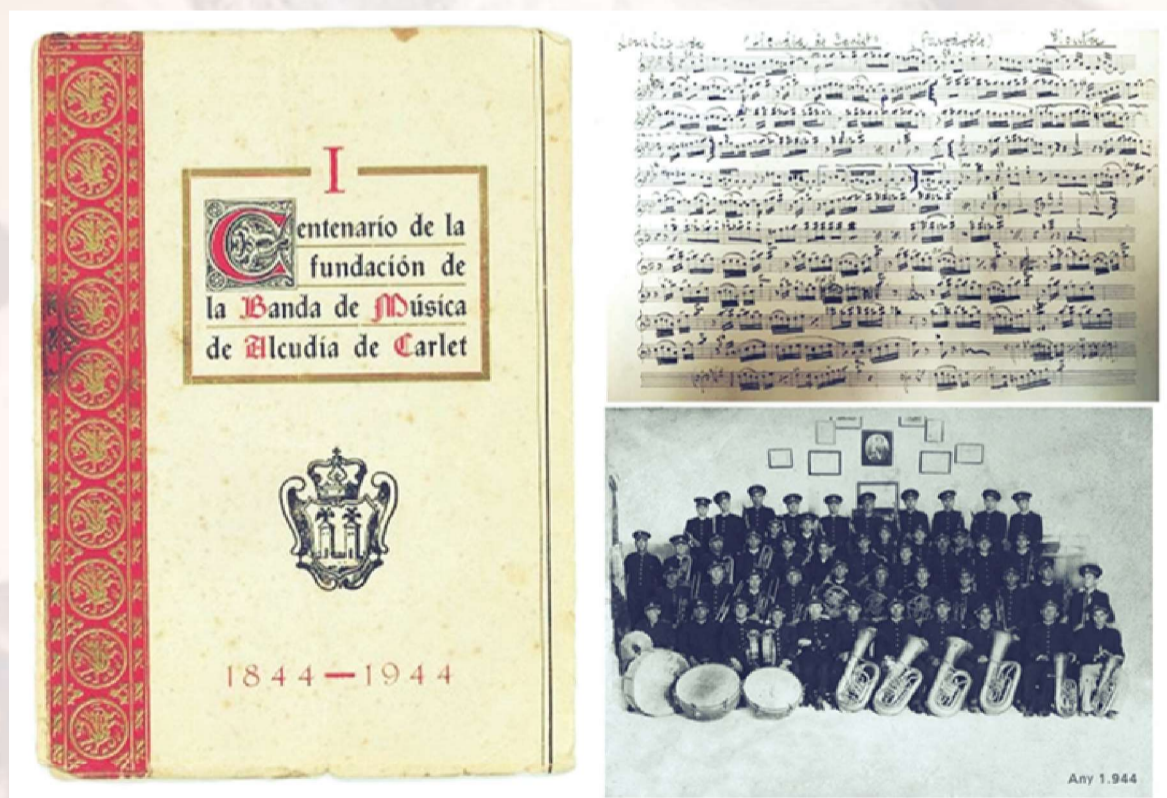 I
Centenario de la
fundación de
la Banda de Música
de Alcudia de Carlet
1844—1944
Alcudia de Carlet (Pasodoble)
Any 1.944